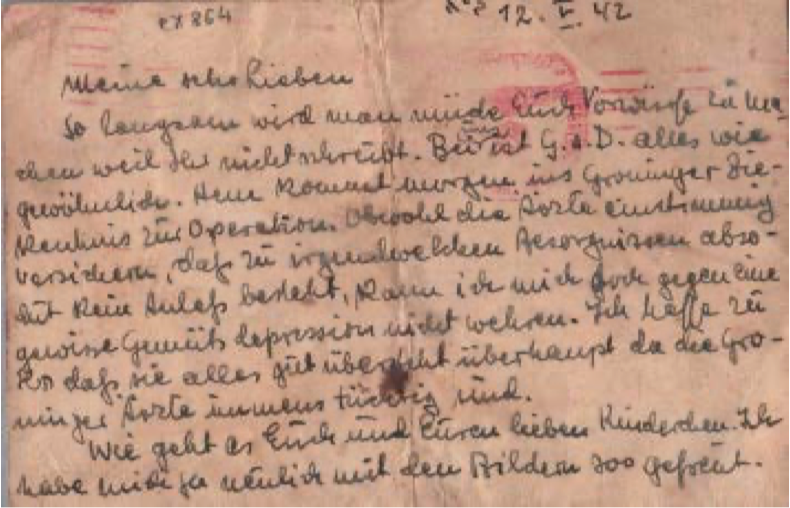 ex 864
12. V. 42
Meine sehr Lieben
So langsam wird man müde Euch Vorwürfe zu ma-
chen weil Ihr nicht schreibt. Bei uns ist G. s. D. alles wie
gewöhnlich. Henn kommt morgen ins Groninger Zie-
kenhuis zur Operation. Obwohl die Ärzte einstimmig
versichern, daß zu irgendwelchen Besorgnissen abso-
lut kein Anlaß besteht, kann ich mich doch gegen eine
gewisse Gemütsdepression nicht wehren. Ich hoffe zu
daß sie alles gut übersteht überhaupt da die Gro-
ninger Ärzte immens tüchtig sind.
Wie geht es Euch und Euren lieben Kinderchen. Ich
habe mich ja neulich mit den Bildern soo gefreut.